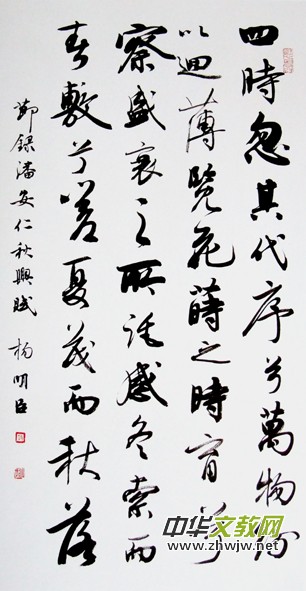 四時忽其代序兮萬物紛
以迴薄覽花蒔之時育兮
察盛衰之所託感冬索而
春敷兮嗟夏茂而秋落
節錄潘安仁秋興賦 楊明臣
中华文教网
www.zhwjw.net